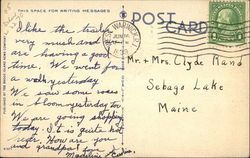 THIS SPACE FOR WRITING MESSAGES
POST CARD
I like the trailer
very much and
are having a good
time. We went for
a walk yesterday
We saw some roses
in bloom yesterday too.
We are going shopping
today. It is quite hot
here. How are you
and grandpa?
Madeline
Mr. & Mrs. Clyde Rand
Sebago Lake
Maine